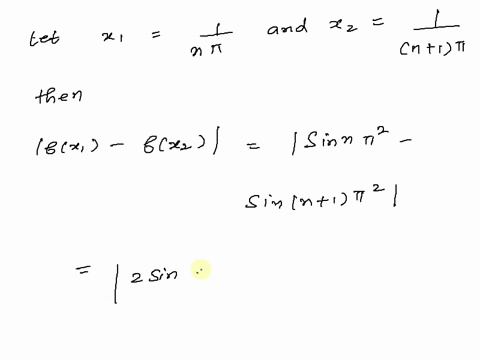 Let x₁ = 1/nπ and x₂ = 1/(n+1)π
then
|f(x₁) - f(x₂)| = |Sin n π² -
Sin(n+1)π²|
= |2 Sin